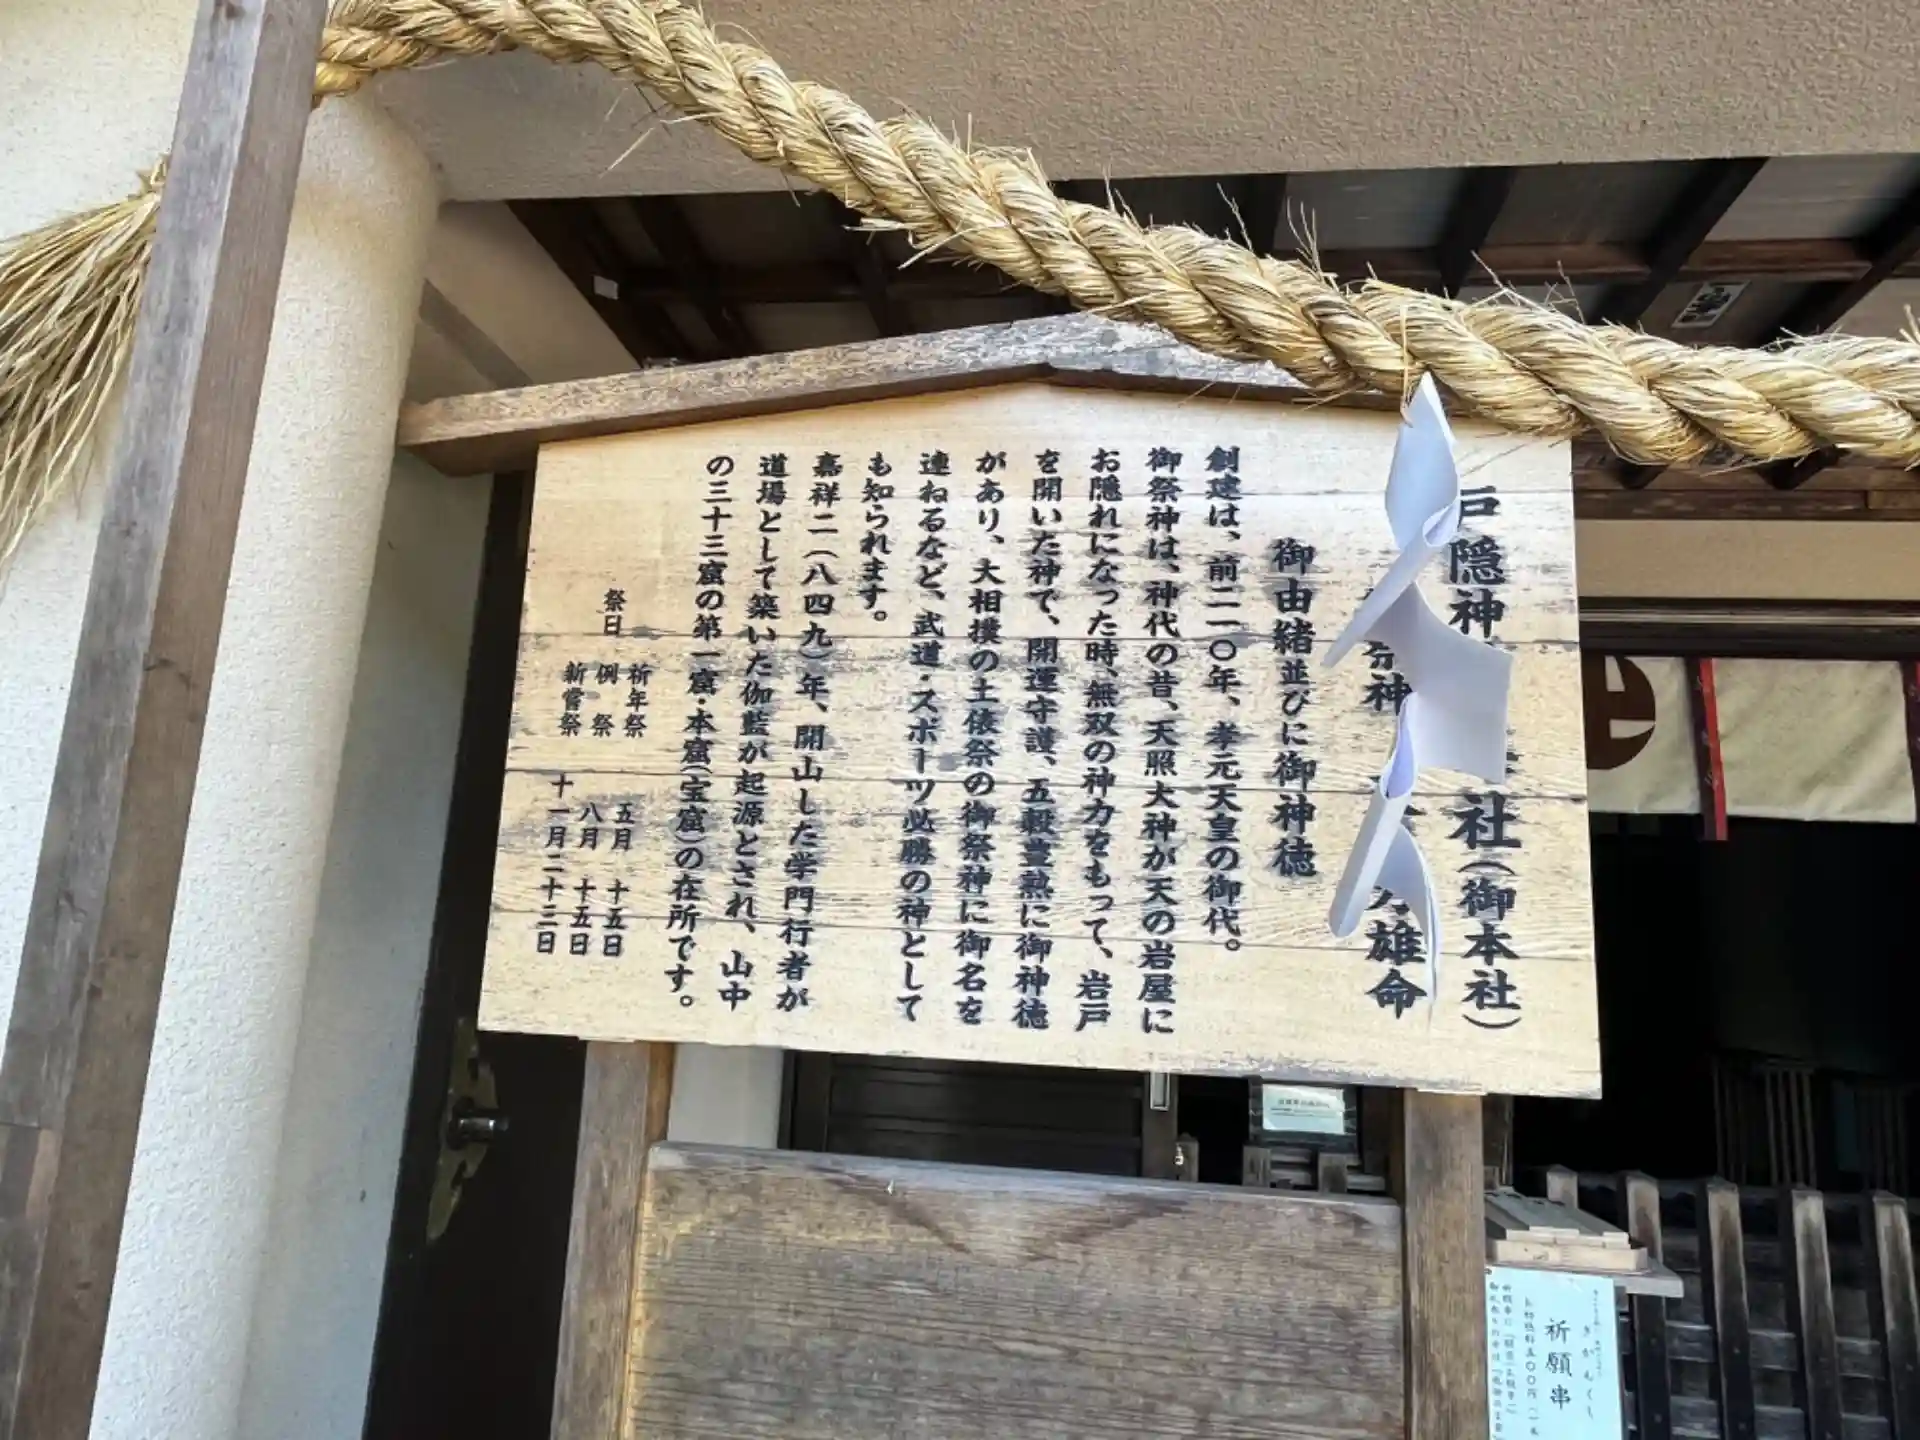 戸隠神社(御本社)
祭神 雄命
御由緒並びに御神徳
創建は、前二一〇年、孝元天皇の御代。
御祭神は、神代の昔、天照大神が天の岩屋に
お隠れになった時、無双の神力をもって、岩戸
を開いた神で、開運守護、五穀豊熟に御神徳
があり、大相撲の土俵祭の御祭神に御名を
連ねるなど、武道・スポーツ必勝の神として
も知られます。
嘉祥二(八四九)年、開山した学門行者が
道場として築いた伽藍が起源とされ、山中
の三十三窟の第一窟・本窟(宝窟)の在所です。
祭日
祈年祭 五月 十五日
例祭 八月 十五日
新嘗祭 十一月二十三日
きがんくし
祈願串